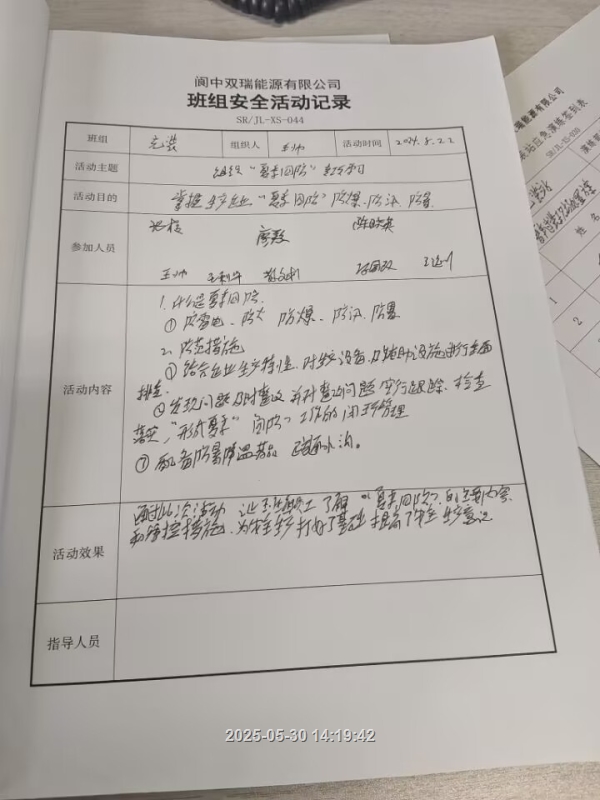 阆中双瑞能源有限公司
班组安全活动记录
SR/JL-XS-044
班组 充装 组织人 王帅 活动时间 2024.5.22
活动主题 组织"夏季四防"学习
活动目的 掌握生产企业"夏季四防"防爆、防汛、防暑
参加人员
王帅
活动内容
1.什么是夏季四防
①防雷电、防火 防爆、防汛、防暑
2.防范措施
①结合企业生产特性,对生产设备、辅助设施进行全面
排查
②发现问题及时整改 并对整改问题实行跟踪、检查
落实,形成夏季"四防"工作的闭环管理
③配备防暑降温药品 疏通水沟。
活动效果
通过此次活动 让 员工了解"夏季四防"的主要内容
和 控措施,为安全生产打好了基础 提高了安全生产意识
指导人员
2025-05-30 14:19:42
双瑞能源有限公司
站应急演练签到表
SR/JL-XS-020
姓名
1
2